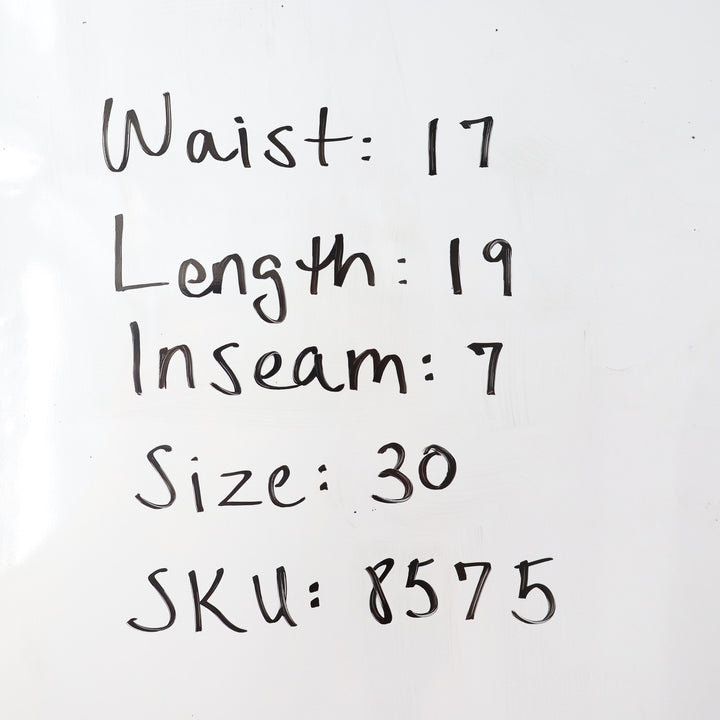 Waist: 17
Length: 19
Inseam: 7
Size: 30
SKU: 8575